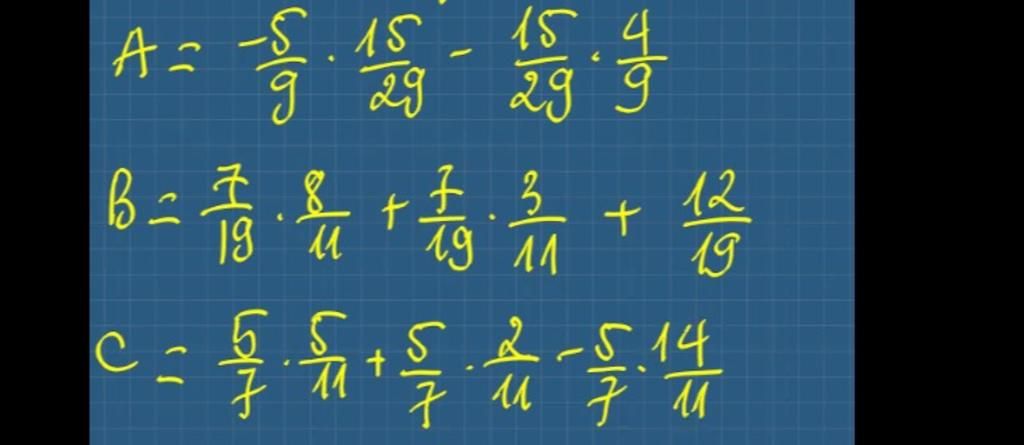 A = -5/9 · 15/29 - 15/29 · 4/9
B = 7/19 · 8/11 + 7/19 · 3/11 + 12/19
C = 5/7 · 5/11 + 5/7 · 2/11 - 5/7 · 14/11